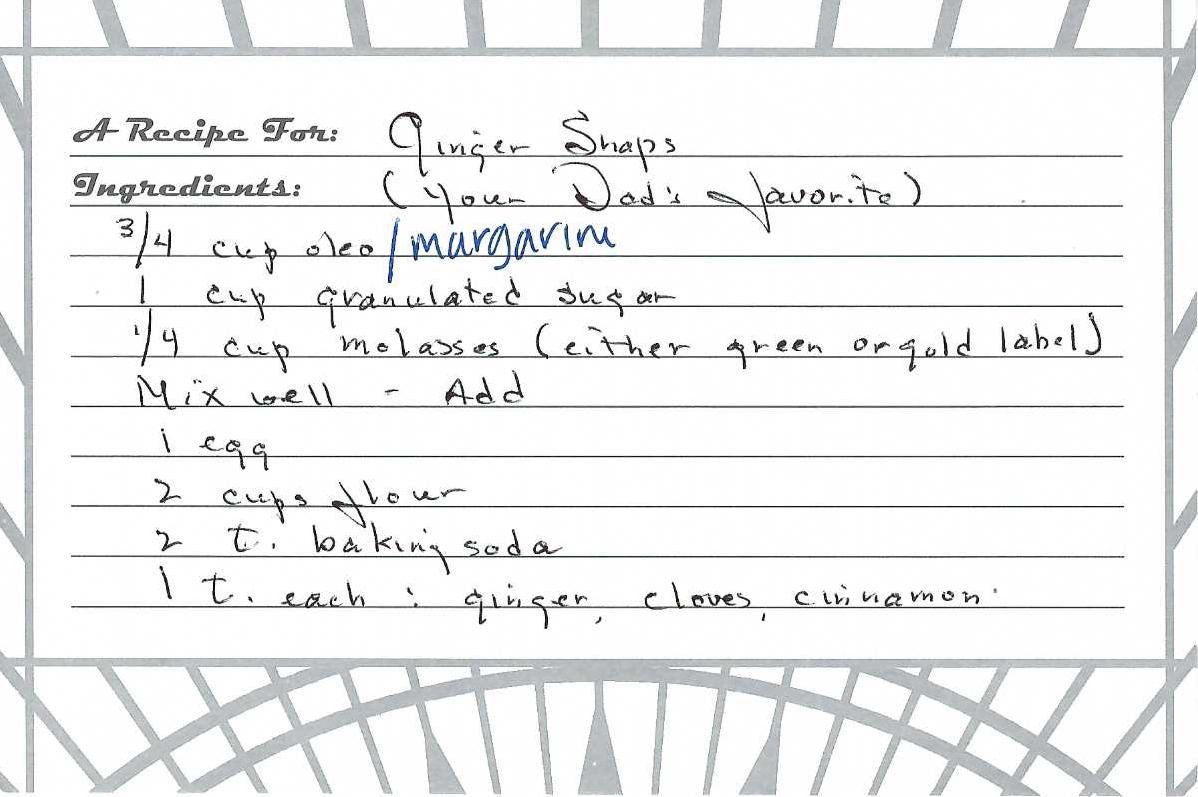 A Recipe For: Ginger Snaps
Ingredients: (Your Dad's favorite)
3/4 cup oleo/margarine
1 cup granulated sugar
1/4 cup molasses (either green or gold label)
Mix well - Add
1 egg
2 cups flour
2 t. baking soda
1 t. each: ginger, cloves, cinnamon.